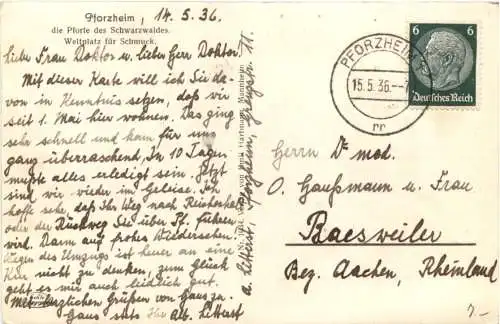 Pforzheim, 14.5.36.
die Pforte des Schwarzwaldes.
Weltplatz für Schmuck.
Liebe Frau Doktor u. lieber Herr Doktor!
Mit dieser Karte will ich Sie da-
von in Kenntnis setzen, daß wir
seit 1. Mai hier wohnen. Das ging
sehr schnell und kam für uns
ganz überraschend. In 10 Tagen
mußte alles erledigt sein. Jetzt
sind wir wieder im Geleise. Ich
hoffe sehr, daß Ihr Weg nach
oder der Rückweg Sie über Pf. führen
wird. Dann auf frohes Wiedersehen.
Wegen des Umzugs ist heuer an eine
Kur nicht zu denken, zum Glück
geht es mir auch leidlich gut.
Mit herzlichen Grüßen von Haus zu
Haus stets Ihr Alb.
Pforzheim,
PFORZHEIM
15.5.36.
6 6
Deutsches Reich
Herrn Dr med.
O. Gaußmann u. Frau
Baesweiler
Bez. Aachen, Rheinland
7.-